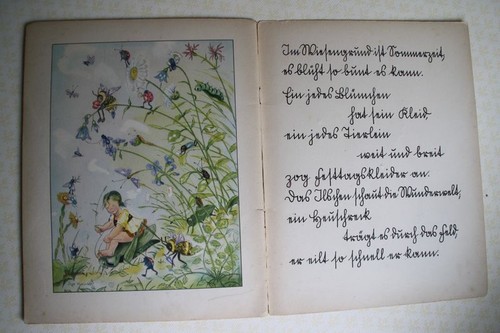 Im Wiesengrund ist Sommerzeit,
es blüht so bunt es kann.
Ein jedes Blümchen
hat sein Kleid
ein jedes Tierlein
weit und breit
zog Festtagskleider an.
Das Ilschen schaut die Wunderwelt;
ein Heuschreck
trägt es durch das Feld,
er eilt so schnell er kann.